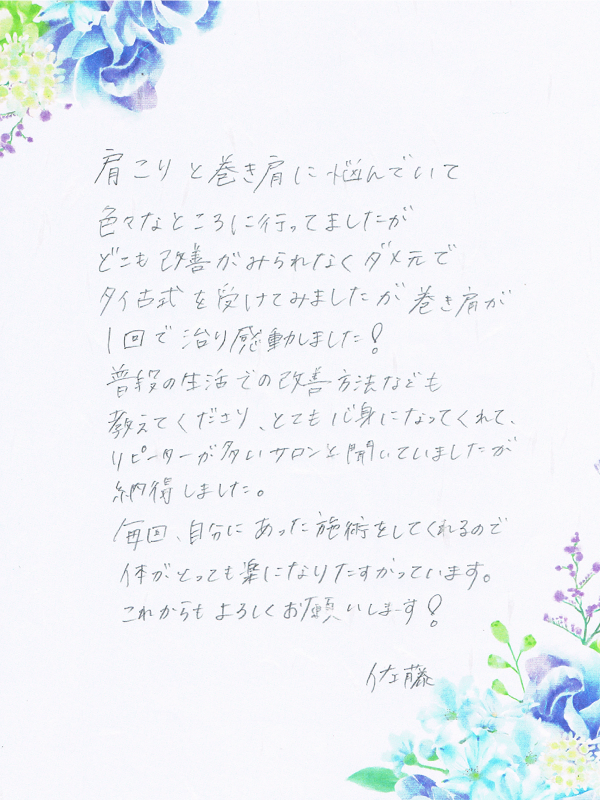 肩こりと巻き肩に悩んでいて
色々なところに行ってましたが
どこも改善がみられなくダメ元で
タイ古式を受けてみましたが巻き肩が
1回で治り感動しました!
普段の生活での改善方法なども
教えてくださり、とても心身になってくれて、
リピーターが多いサロンと聞いていましたが
納得しました。
毎回、自分にあった施術をしてくれるので
体がとっても楽になりたすかっています。
これからもよろしくお願いします!
佐藤